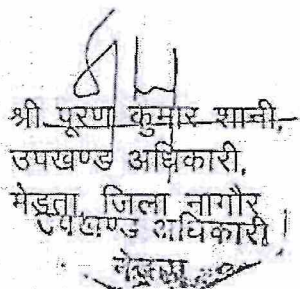 श्री पूरण कुमार शानी,
उपखण्ड अधिकारी,
मेड़ता जिला नागौर
उपखण्ड अधिकारी
मेड़ता